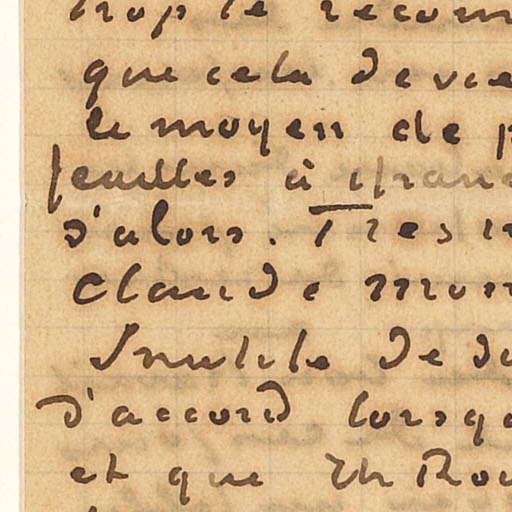 trop le recom
que cela devie
le moyen de p
feuilles à
d'alors. Tres
Claude mon
Inutile de d
d'accord lorsq
et que Th Rou